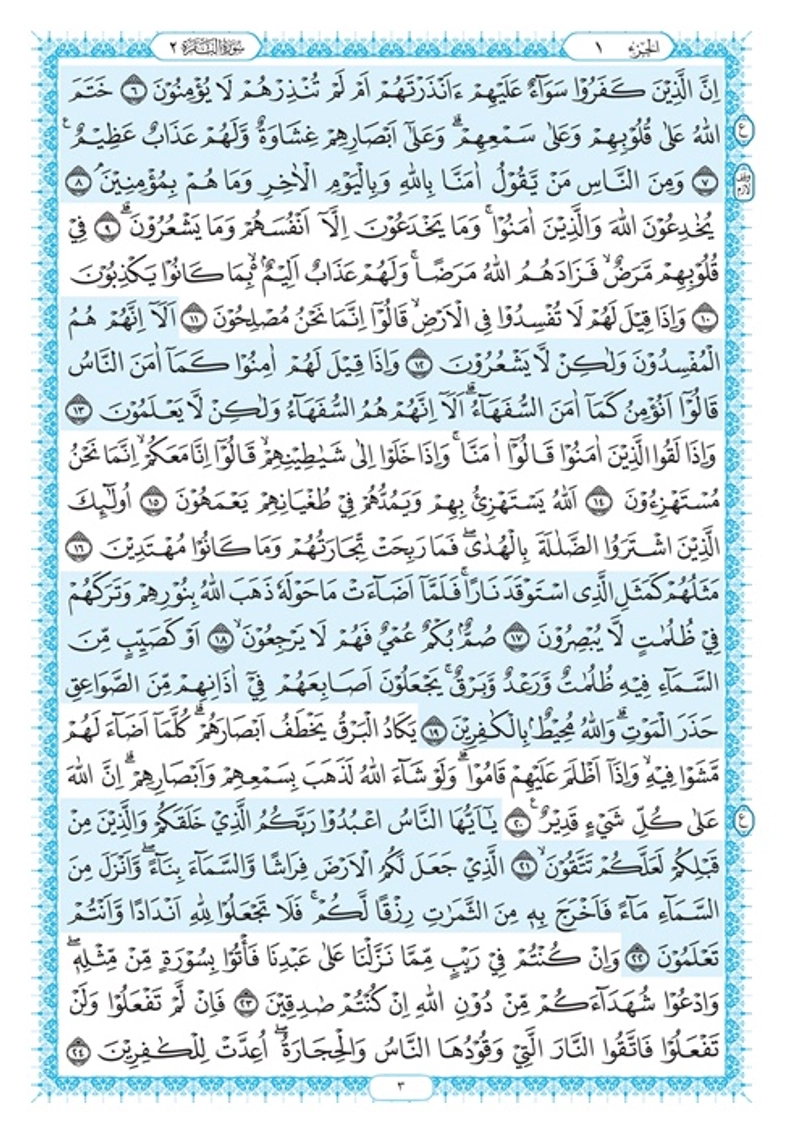 الجزء ١
سورة البقرة ٢
اِنَّ الَّذِيْنَ كَفَرُوْا سَوَآءٌ عَلَيْهِمْ ءَاَنْذَرْتَهُمْ اَمْ لَمْ تُنْذِرْهُمْ لَا يُؤْمِنُوْنَ ۝٦ خَتَمَ
اللّٰهُ عَلٰى قُلُوْبِهِمْ وَعَلٰى سَمْعِهِمْ ؕ وَعَلٰٓى اَبْصَارِهِمْ غِشَاوَةٌ وَّلَهُمْ عَذَابٌ عَظِيْمٌ ۚ
ع
۝٧ وَمِنَ النَّاسِ مَنْ يَّقُوْلُ اٰمَنَّا بِاللّٰهِ وَبِالْيَوْمِ الْاٰخِرِ وَمَا هُمْ بِمُؤْمِنِيْنَ ۘ ۝٨
وقف لازم
يُخٰدِعُوْنَ اللّٰهَ وَالَّذِيْنَ اٰمَنُوْا ۚ وَمَا يَخْدَعُوْنَ اِلَّآ اَنْفُسَهُمْ وَمَا يَشْعُرُوْنَ ؕ ۝٩ فِيْ
قُلُوْبِهِمْ مَّرَضٌ ۙ فَزَادَهُمُ اللّٰهُ مَرَضًا ۚ وَلَهُمْ عَذَابٌ اَلِيْمٌ ۢ ۙ بِمَا كَانُوْا يَكْذِبُوْنَ
۝١٠ وَاِذَا قِيْلَ لَهُمْ لَا تُفْسِدُوْا فِى الْاَرْضِ ۙ قَالُوْٓا اِنَّمَا نَحْنُ مُصْلِحُوْنَ ۝١١ اَلَآ اِنَّهُمْ هُمُ
الْمُفْسِدُوْنَ وَلٰكِنْ لَّا يَشْعُرُوْنَ ۝١٢ وَاِذَا قِيْلَ لَهُمْ اٰمِنُوْا كَمَآ اٰمَنَ النَّاسُ
قَالُوْٓا اَنُؤْمِنُ كَمَآ اٰمَنَ السُّفَهَآءُ ؕ اَلَآ اِنَّهُمْ هُمُ السُّفَهَآءُ وَلٰكِنْ لَّا يَعْلَمُوْنَ ۝١٣
وَاِذَا لَقُوا الَّذِيْنَ اٰمَنُوْا قَالُوْٓا اٰمَنَّا ۚ وَاِذَا خَلَوْا اِلٰى شَيٰطِيْنِهِمْ ۙ قَالُوْٓا اِنَّا مَعَكُمْ ۙ اِنَّمَا نَحْنُ
مُسْتَهْزِءُوْنَ ۝١٤ اَللّٰهُ يَسْتَهْزِئُ بِهِمْ وَيَمُدُّهُمْ فِيْ طُغْيَانِهِمْ يَعْمَهُوْنَ ۝١٥ اُولٰٓئِكَ
الَّذِيْنَ اشْتَرَوُا الضَّلٰلَةَ بِالْهُدٰى ۖ فَمَا رَبِحَتْ تِّجَارَتُهُمْ وَمَا كَانُوْا مُهْتَدِيْنَ ۝١٦
مَثَلُهُمْ كَمَثَلِ الَّذِى اسْتَوْقَدَ نَارًا ۚ فَلَمَّآ اَضَآءَتْ مَا حَوْلَهٗ ذَهَبَ اللّٰهُ بِنُوْرِهِمْ وَتَرَكَهُمْ
فِيْ ظُلُمٰتٍ لَّا يُبْصِرُوْنَ ۝١٧ صُمٌّ ۢ بُكْمٌ عُمْيٌ فَهُمْ لَا يَرْجِعُوْنَ ۙ ۝١٨ اَوْ كَصَيِّبٍ مِّنَ
السَّمَآءِ فِيْهِ ظُلُمٰتٌ وَّرَعْدٌ وَّبَرْقٌ ۚ يَجْعَلُوْنَ اَصَابِعَهُمْ فِيْٓ اٰذَانِهِمْ مِّنَ الصَّوَاعِقِ
حَذَرَ الْمَوْتِ ؕ وَاللّٰهُ مُحِيْطٌ ۢ بِالْكٰفِرِيْنَ ۝١٩ يَكَادُ الْبَرْقُ يَخْطَفُ اَبْصَارَهُمْ ؕ كُلَّمَآ اَضَآءَ لَهُمْ
مَّشَوْا فِيْهِ ۙ وَاِذَآ اَظْلَمَ عَلَيْهِمْ قَامُوْا ؕ وَلَوْ شَآءَ اللّٰهُ لَذَهَبَ بِسَمْعِهِمْ وَاَبْصَارِهِمْ ؕ اِنَّ اللّٰهَ
عَلٰى كُلِّ شَيْءٍ قَدِيْرٌ ۚ ۝٢٠ يٰٓاَيُّهَا النَّاسُ اعْبُدُوْا رَبَّكُمُ الَّذِيْ خَلَقَكُمْ وَالَّذِيْنَ مِنْ
ع
قَبْلِكُمْ لَعَلَّكُمْ تَتَّقُوْنَ ۙ ۝٢١ الَّذِيْ جَعَلَ لَكُمُ الْاَرْضَ فِرَاشًا وَّالسَّمَآءَ بِنَآءً ۖ وَّاَنْزَلَ مِنَ
السَّمَآءِ مَآءً فَاَخْرَجَ بِهٖ مِنَ الثَّمَرٰتِ رِزْقًا لَّكُمْ ۚ فَلَا تَجْعَلُوْا لِلّٰهِ اَنْدَادًا وَّاَنْتُمْ
تَعْلَمُوْنَ ۝٢٢ وَاِنْ كُنْتُمْ فِيْ رَيْبٍ مِّمَّا نَزَّلْنَا عَلٰى عَبْدِنَا فَأْتُوْا بِسُوْرَةٍ مِّنْ مِّثْلِهٖ ۖ
وَادْعُوْا شُهَدَآءَكُمْ مِّنْ دُوْنِ اللّٰهِ اِنْ كُنْتُمْ صٰدِقِيْنَ ۝٢٣ فَاِنْ لَّمْ تَفْعَلُوْا وَلَنْ
تَفْعَلُوْا فَاتَّقُوا النَّارَ الَّتِيْ وَقُوْدُهَا النَّاسُ وَالْحِجَارَةُ ۖ اُعِدَّتْ لِلْكٰفِرِيْنَ ۝٢٤
٣